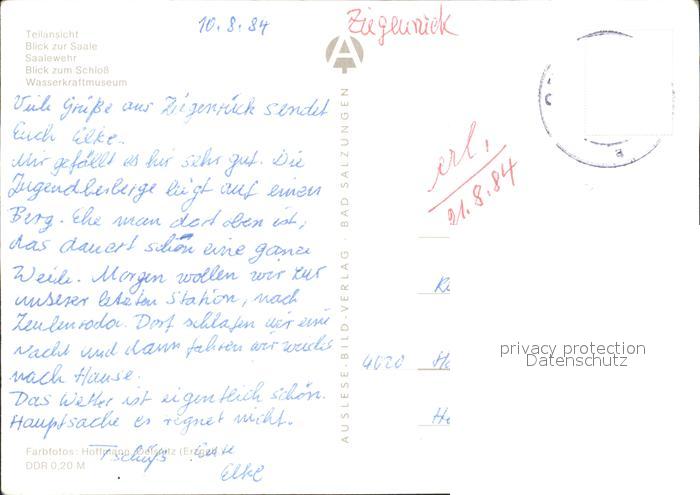 Teilansicht
Blick zur Saale
Saalewehr
Blick zum Schloß
Wasserkraftmuseum
10.8.84
Ziegenrück
Viele Grüße aus Ziegenrück sendet
Euch Elke.
Mir gefällt es hir sehr gut. Die
Jugendherberge liegt auf einen
Berg. Ehe man dort oben ist,
das dauert schon eine ganze
Weile. Morgen wollen wir zur
unserer letzten Station, nach
Zeulenroda. Dort schlafen wir eine
Nacht und dann fahren wir
nach Hause.
Das Wetter ist eigentlich schön.
Hauptsache es regnet nicht.
Tschüß Eure
Elke
Farbfotos: Hoffmann, Oelsnitz (Erzgeb.)
DDR 0,20 M
AUSLESE-BILD-VERLAG · BAD SALZUNGEN
erl.
21.8.84
4020
privacy protection
Datenschutz